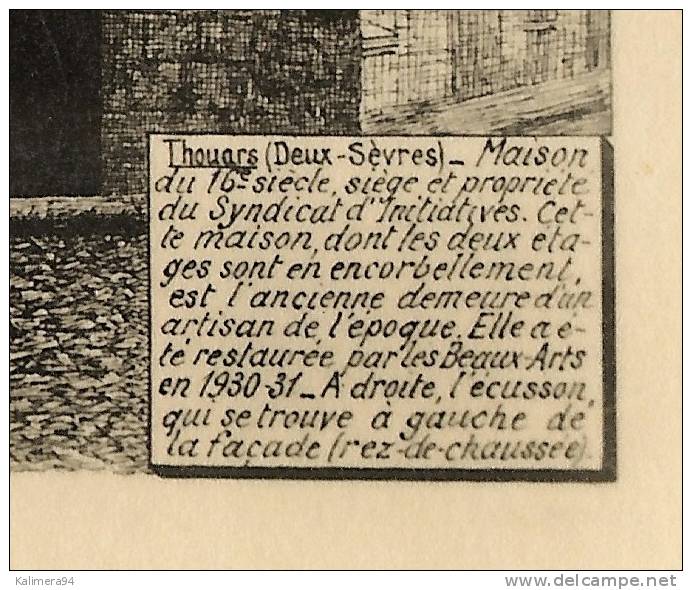 Thouars (Deux-Sèvres) - Maison
du 16e siècle, siège et propriété
du Syndicat d'Initiatives. Cet-
te maison, dont les deux éta-
ges sont en encorbellement,
est l'ancienne demeure d'un
artisan de l'époque. Elle a é-
té restaurée par les Beaux-Arts
en 1930-31 - A droite, l'écusson,
qui se trouve à gauche de
la façade (rez-de-chaussée).
Kalimera94
delcampe.net